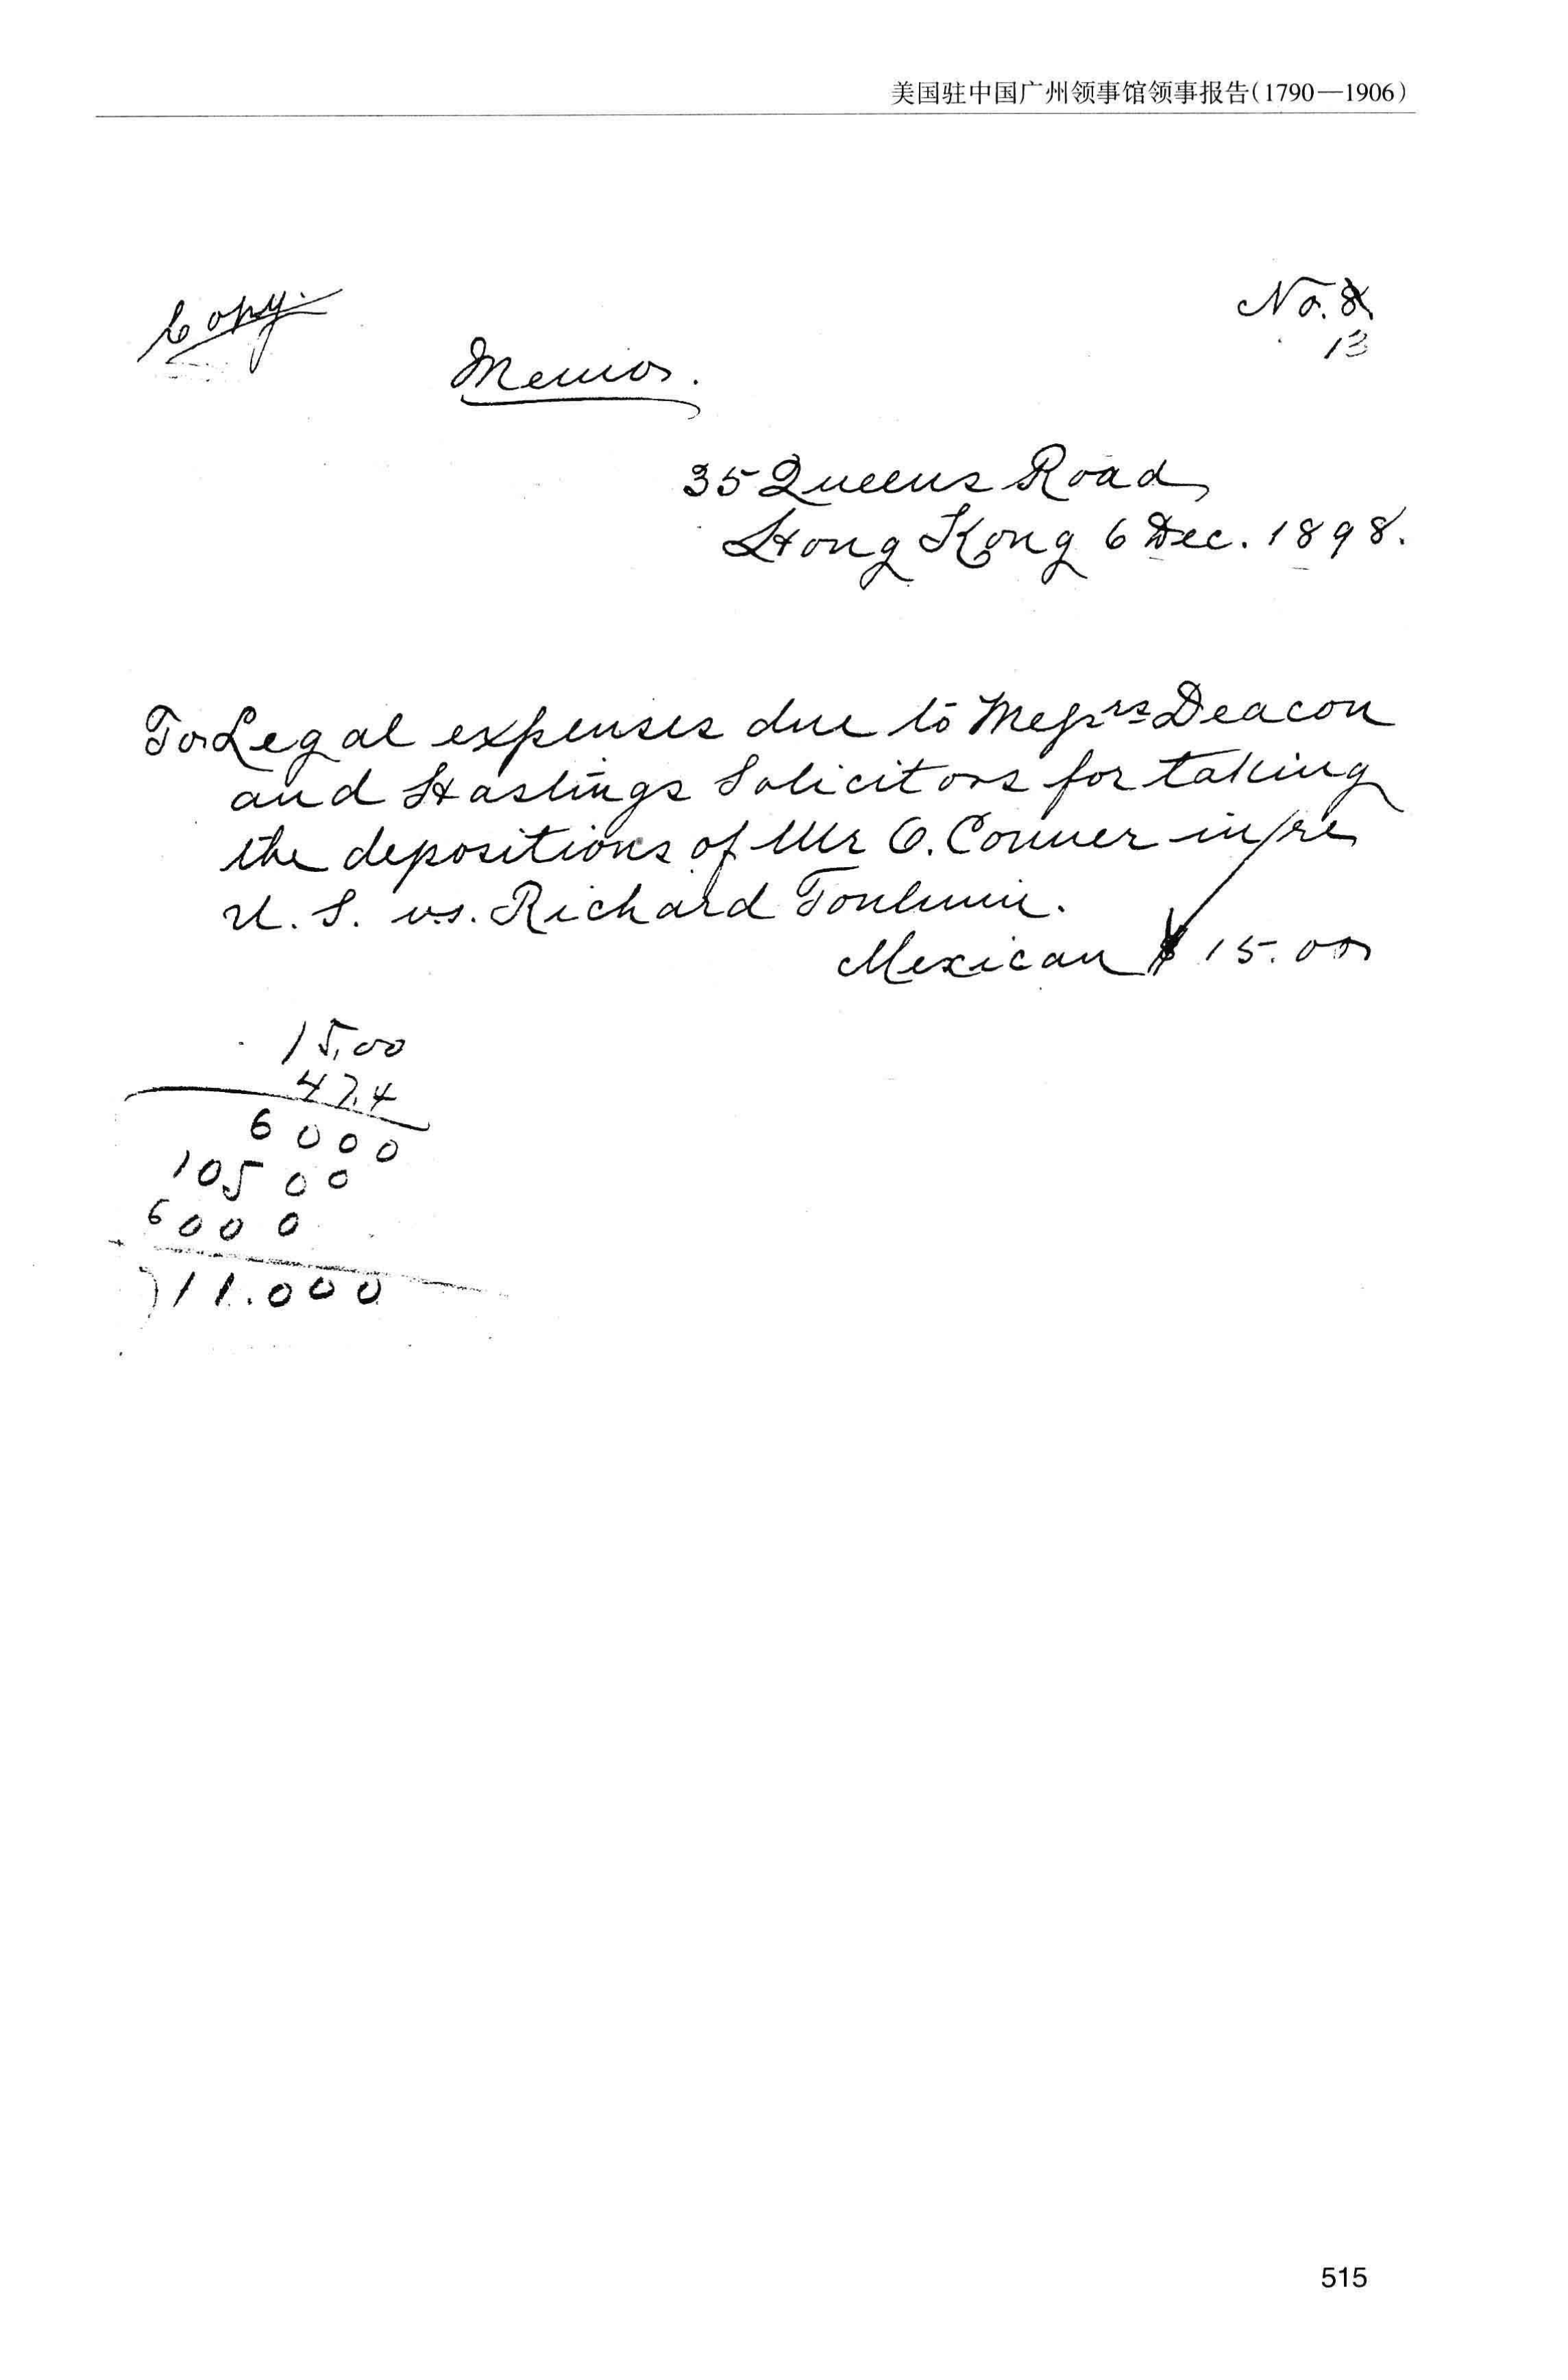 美国驻中国广州领事馆领事报告(1790—1906)
Copy.
No. 8
13
Memo.
35 Queens Road
Hong Kong 6 Dec. 1898.
To Legal expenses due to Messrs Deacon
and Hastings Solicitors for taking
the depositions of Mr O. Conner in re
U. S. vs. Richard Toulmin.
Mexican $ 15.00
15.00
47.4
6000
10500
6000
711.000
515